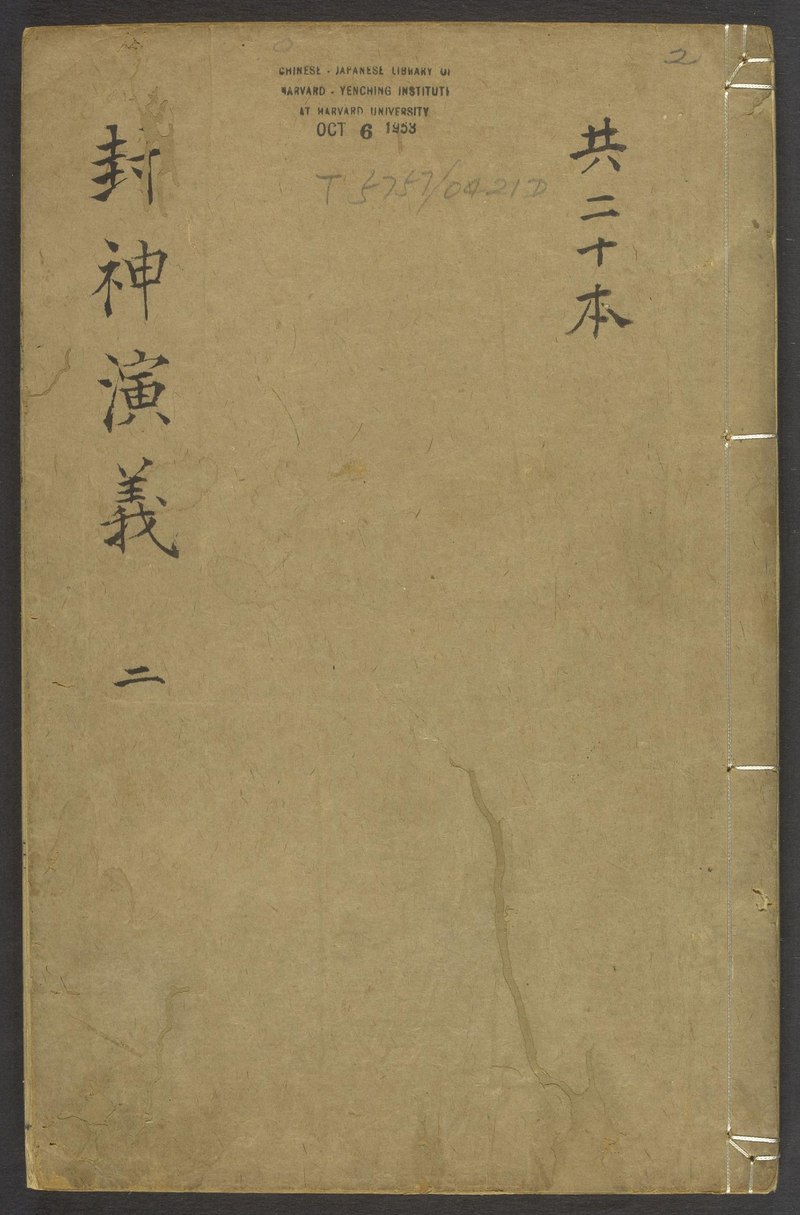 2
CHINESE - JAPANESE LIBRARY OF
HARVARD - YENCHING INSTITUTE
AT HARVARD UNIVERSITY
OCT 6 1953
T 5757/0421D
共二十本
封神演義 二